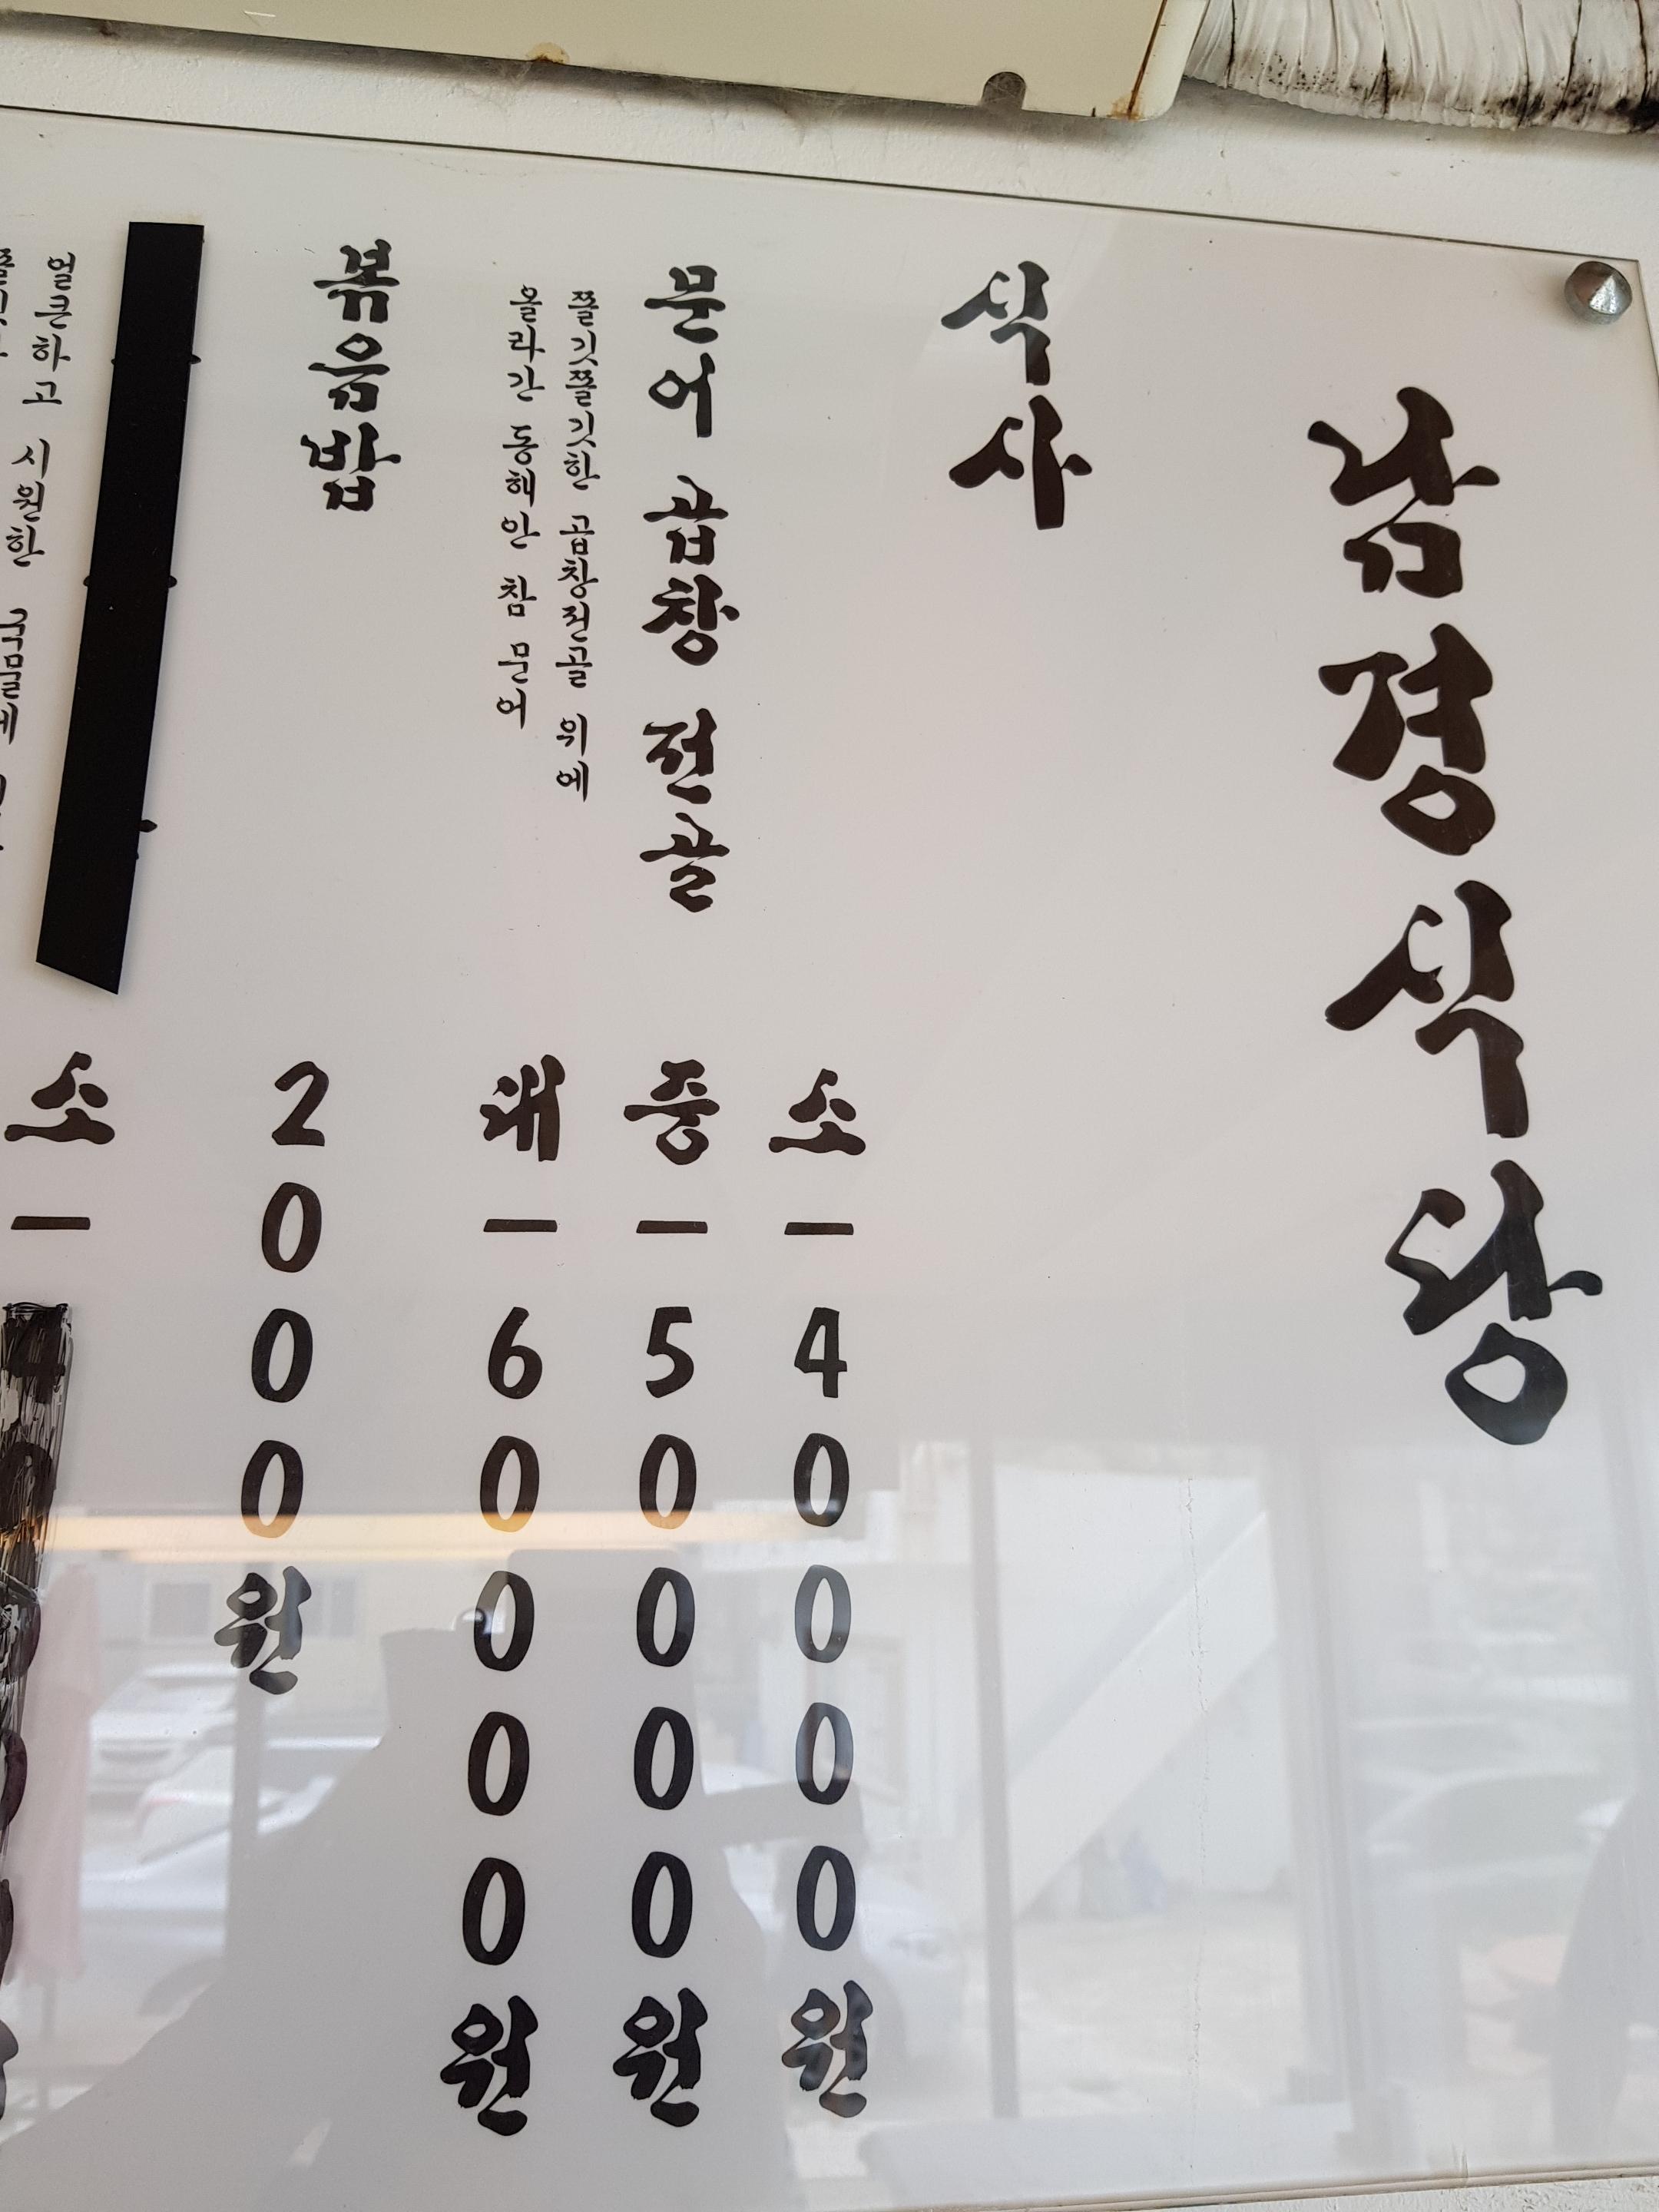 남경식당
식사
문어 곱창 전골
쫄깃쫄깃한 곱창전골 위에
올라간 동해안 참 문어
소 - 40000원
중 - 50000원
대 - 60000원
볶음밥 2000원
얼큰하고 시원한 국물에
소 -